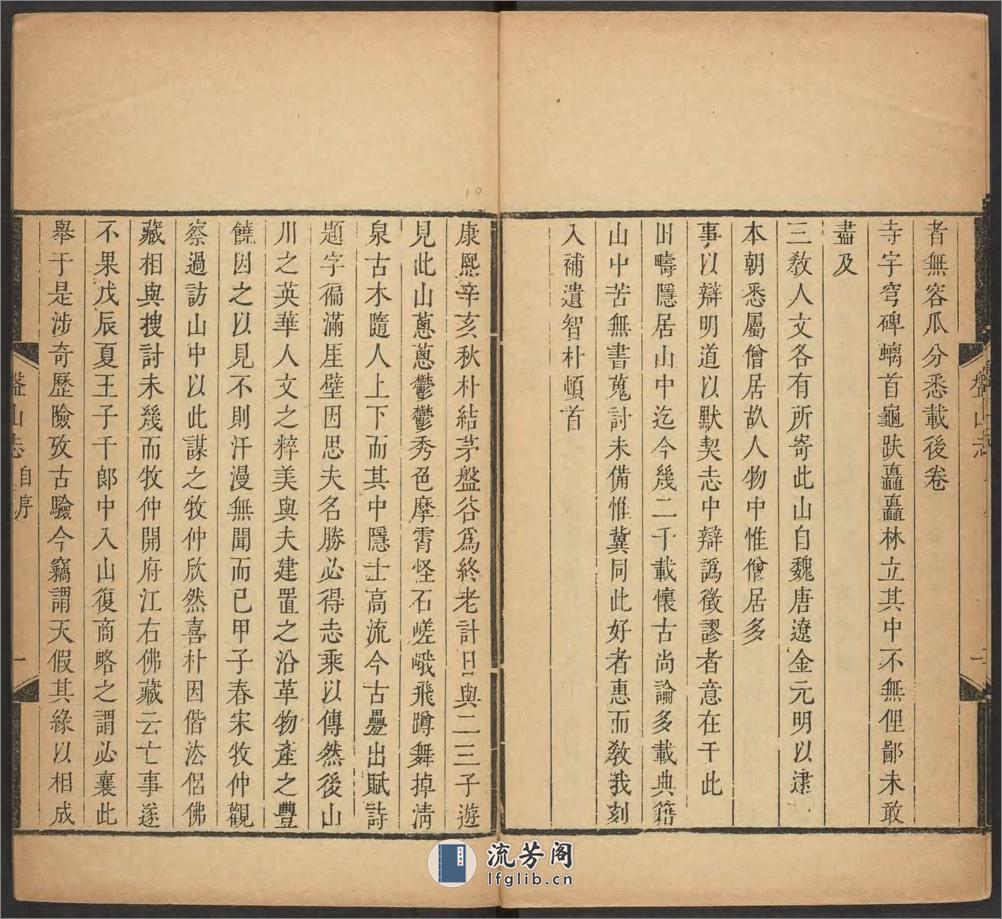 者無容瓜分悉載後卷
寺宇穹碑螭首龜趺矗矗林立其中不無俚鄙未敢
盡及
三教人文各有所寄此山自魏唐遼金元明以逮
本朝悉屬僧居故人物中惟僧居多
事以辯明道以默契志中辯譌徵謬者意在于此
田疇隱居山中迄今幾二千載懷古尚論多載典籍
山中苦無書蒐討未備惟冀同此好者惠而敎我刻
入補遺智朴頓首
盤山志
康熙辛亥秋朴結茅盤谷爲終老計日與二三子遊
見此山蔥蔥鬱鬱秀色摩霄怪石嵯峨飛蹲舞掉淸
泉古木隨人上下而其中隱士高流今古疊出賦詩
題字徧滿厓壁因思夫名勝必得志乘以傳然後山
川之英華人文之粹美與夫建置之沿革物產之豐
饒因之以見不則汗漫無聞而已甲子春宋牧仲觀
察過訪山中以此謀之牧仲欣然喜朴因偕法侶佛
藏相與搜討未幾而牧仲開府江右佛藏云亡事遂
不果戊辰夏王子千郞中入山復商略之謂必襄此
舉于是涉奇歷險攷古驗今竊謂天假其緣以相成
盤山志 自序 一
流芳阁
lfglib.cn